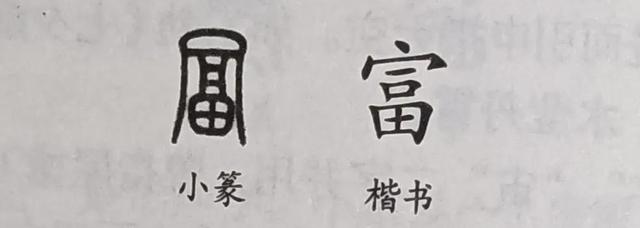 富 富
小篆 楷书